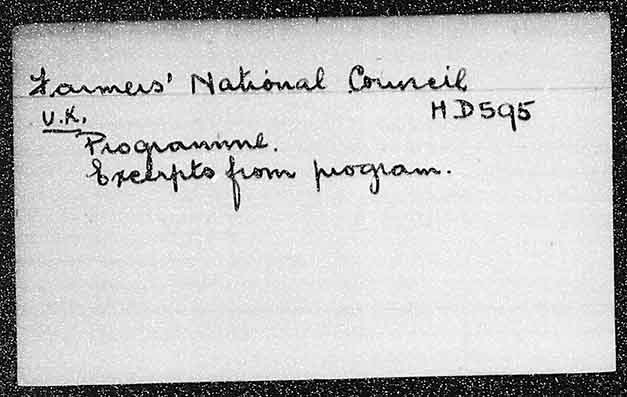 Farmers' National Council
U.K. HD595
Programme.
Excerpts from program.